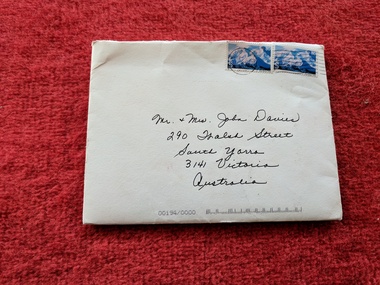 Mr. & Mrs. John Davies
290 Walsh Street
South Yarra
3141 Victoria
Australia
00194/0000